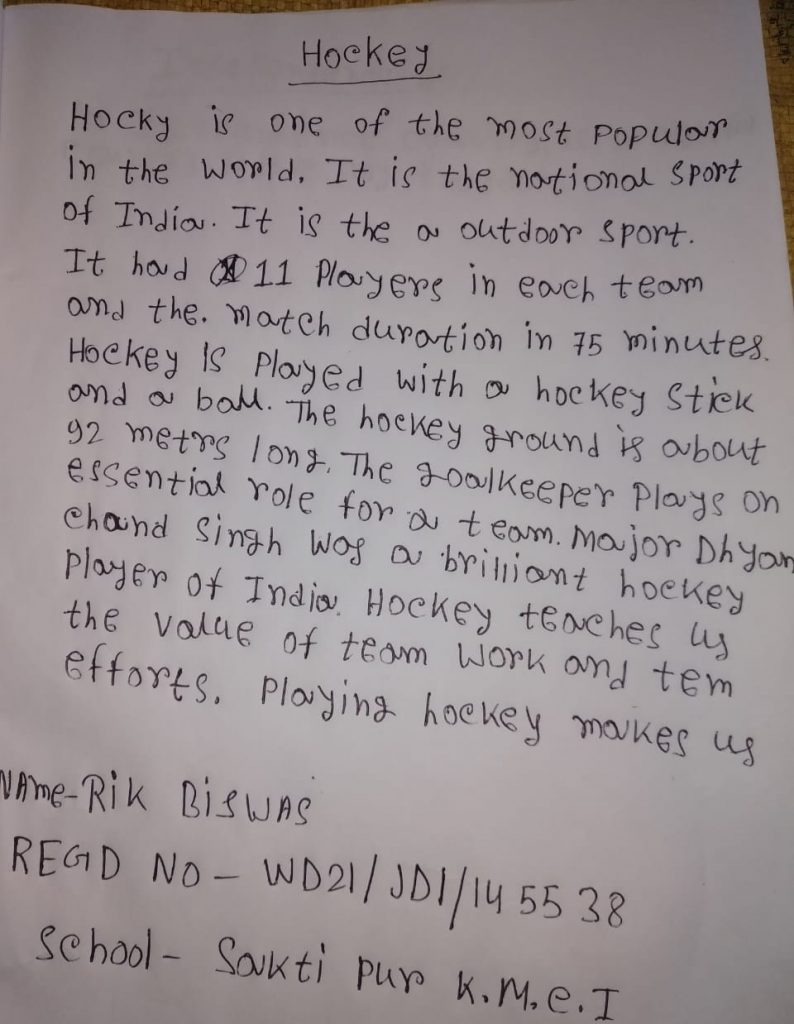 Hockey
Hocky is one of the most popular
in the world. It is the national sport
of India. It is the a outdoor sport.
It had 11 players in each team
and the. match duration in 75 minutes.
Hockey is played with a hockey stick
and a ball. The hockey ground is about
92 metrs long. The goalkeeper plays on
essential role for a team. Major Dhyan
chand Singh was a brilliant hockey
player of India. Hockey teaches us
the value of team work and tem
efforts. Playing hockey makes us
NAme-Rik BiswAs
REGD No - WD21/JD1/14 55 38
School - Sakti pur K.M.e.I